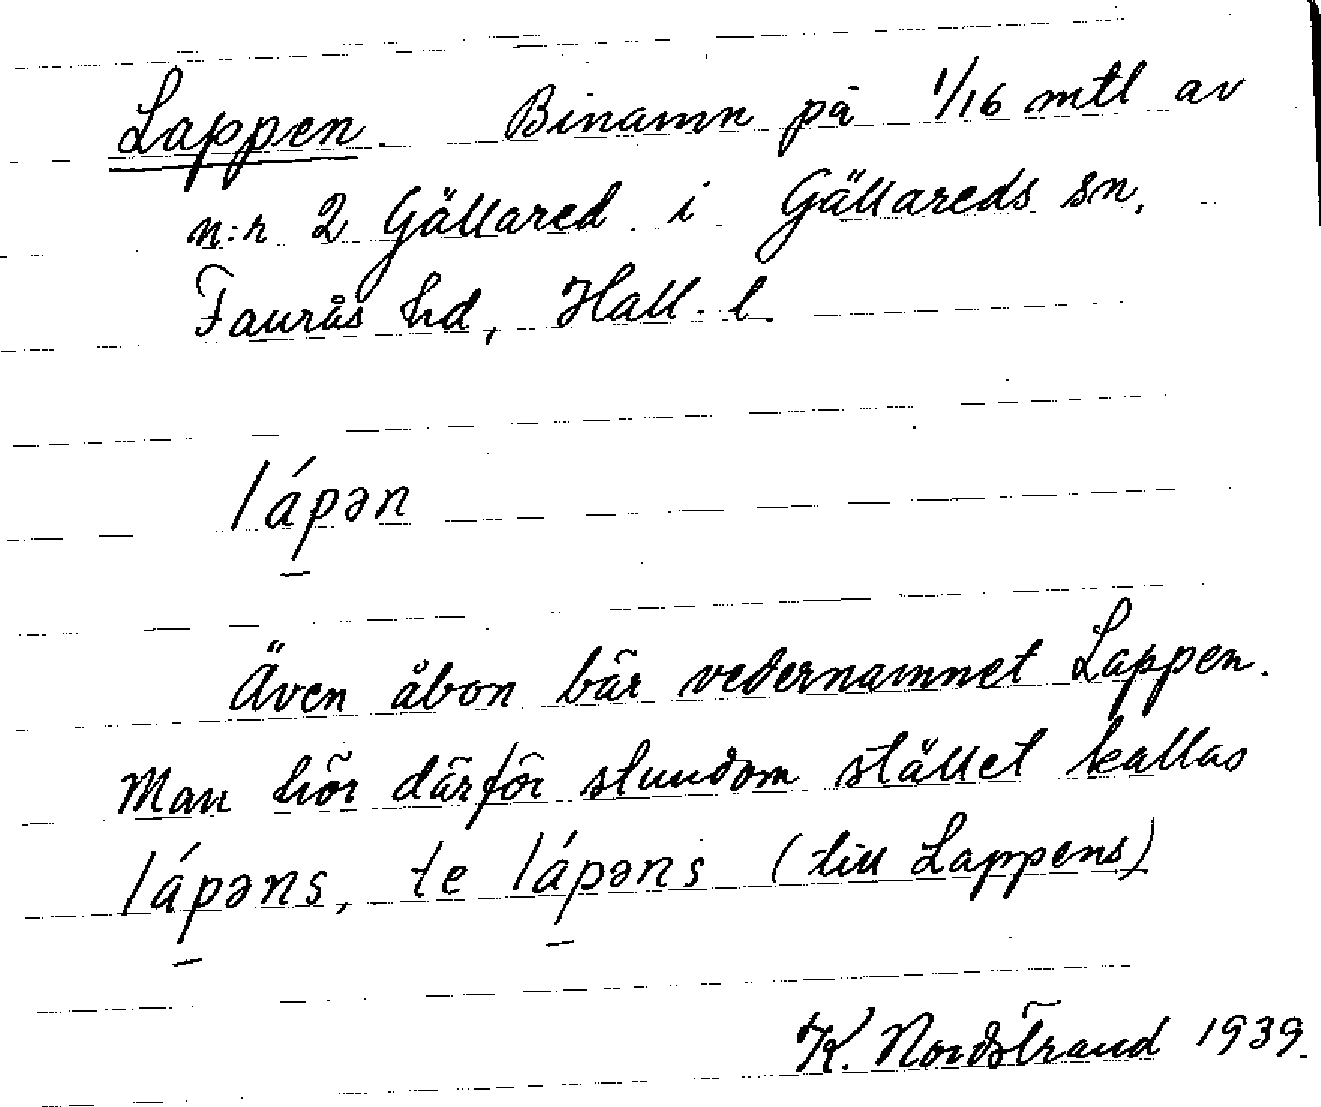 Lappen. Binamn på 1/16 mtl av
n:r 2 Gällared i Gällareds sn.
Faurås hd, Hall. l.
lápən
Även åbon bär vedernamnet Lappen.
Man hör därför stundom stället kallas
lápəns, te lápəns (till Lappens)
K. Nordstrand 1939.